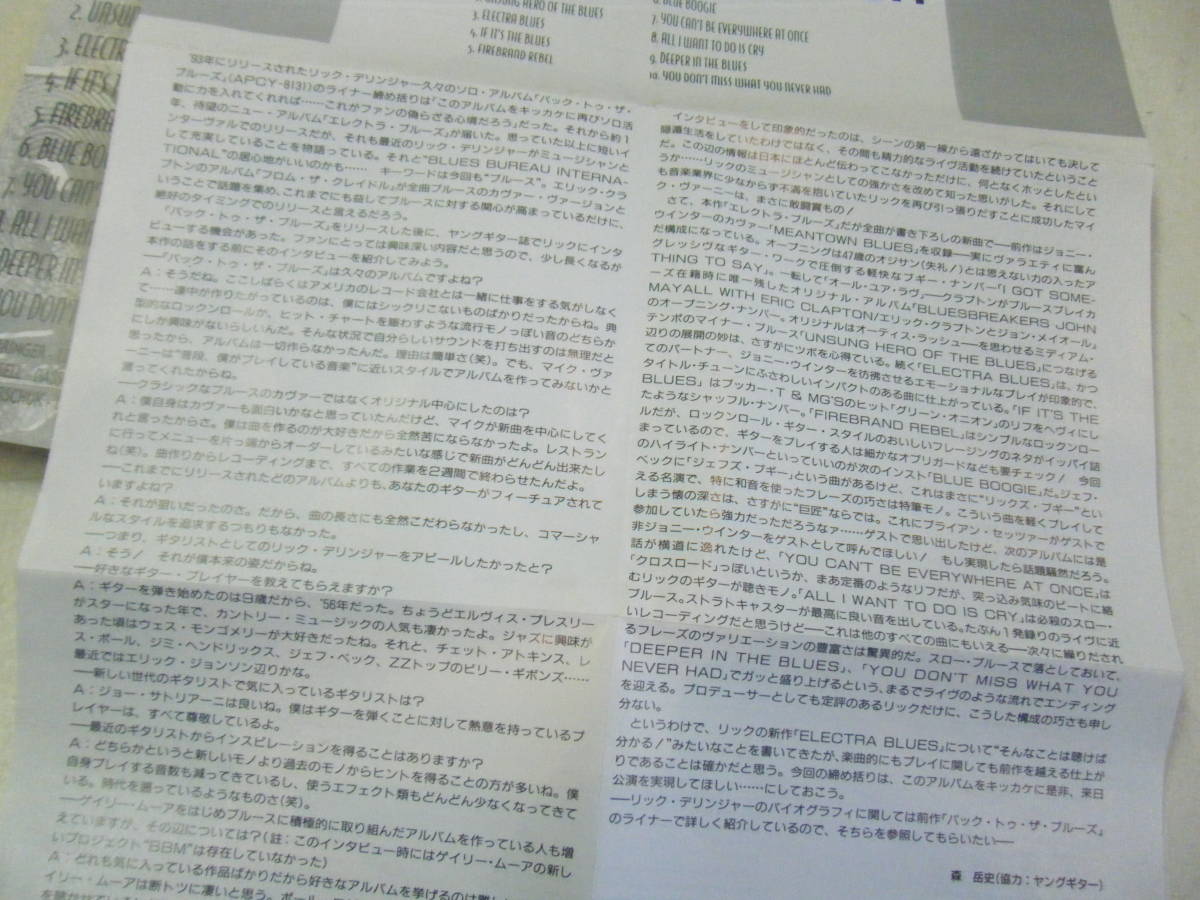 2. UNSUN
3. ELECTR
4. IF IT'S T
5. FIREBRAN
6. BLUE BOO
7. YOU CAN'
ALL I WAN
DEEPER IN
YOU DON'
HERO OF THE BLUES
3. ELECTRA BLUES
4. IF IT'S THE BLUES
5. FIREBRAND REBEL
BLUE BOOGIE
7. YOU CAN'T BE EVERYWHERE AT ONCE
8. ALL I WANT TO DO IS CRY
9. DEEPER IN THE BLUES
10. YOU DON'T MISS WHAT YOU NEVER HAD
'93年にリリースされたリック・デリンジャー久々のソロ・アルバム「バック・トゥ・ザ・
ブルーズ」(APCY-8131)のライナー締め括りは「このアルバムをキッカケに再びソロ活
動に力を入れてくれれば……これがファンの偽らざる心境だろう」だった。それから約1
年、待望のニュー・アルバム「エレクトラ・ブルーズ」が届いた。思っていた以上に短いイ
ンターヴァルでのリリースだが、それも最近のリック・デリンジャーがミュージシャンと
して充実していることを物語っている。それと"BLUES BUREAU INTERNA-
TIONAL"の居心地がいいのかも……　キーワードは今回も"ブルース"。エリック・クラ
プトンのアルバム「フロム・ザ・クレイドル」が全曲ブルースのカヴァー・ヴァージョンと
いうことで話題を集め、これまでにも益してブルースに対する関心が高まっているだけに、
絶好のタイミングでのリリースと言えるだろう。
「バック・トゥ・ザ・ブルーズ」をリリースした後に、ヤングギター誌でリックにインタ
ビューする機会があった。ファンにとっては興味深い内容だと思うので、少し長くなるが
本作の話をする前にそのインタビューを紹介してみよう。
──「バック・トゥ・ザ・ブルーズ」は久々のアルバムですよね?
A：そうだね。ここしばらくはアメリカのレコード会社とは一緒に仕事をする気がしなく
て……連中が作りたがっているのは、僕にはシックリこないものばかりだったからね。典
型的なロックンロールか、ヒット・チャートを賑わすような流行モノっぽい音のどちらか
にしか興味がないらしいんだ。そんな状況で自分らしいサウンドを打ち出すのは無理だと
思ったから、アルバムは一切作らなかったんだ。理由は簡単さ(笑)。でも、マイク・ヴァ
ーニーは"普段、僕がプレイしている音楽"に近いスタイルでアルバムを作ってみないかと
言ってくれたからね。
──クラシックなブルースのカヴァーではなくオリジナル中心にしたのは?
A：僕自身はカヴァーも面白いかなと思っていたんだけど、マイクが新曲を中心にしてく
れと言ったからさ。僕は曲を作るのが大好きだから全然苦にならなかったよ。レストラン
に行ってメニューを片っ端からオーダーしているみたいな感じで新曲がどんどん出来たし
ね(笑)。曲作りからレコーディングまで、すべての作業を2週間で終わらせたんだよ。
──これまでにリリースされたどのアルバムよりも、あなたのギターがフィーチュアされて
いますよね?
A：それが狙いだったのさ。だから、曲の長さにも全然こだわらなかったし、コマーシャ
ルなスタイルを追求するつもりもなかった。
──つまり、ギタリストとしてのリック・デリンジャーをアピールしたかったと?
A：そう!　それが僕本来の姿だからね。
──好きなギター・プレイヤーを教えてもらえますか?
A：ギターを弾き始めたのは9歳だから、'56年だった。ちょうどエルヴィス・プレスリー
がスターになった年で、カントリー・ミュージックの人気も凄かったよ。ジャズに興味が
あった頃はウェス・モンゴメリーが大好きだったね。それと、チェット・アトキンス、レ
ス・ポール、ジミ・ヘンドリックス、ジェフ・ベック、ZZトップのビリー・ギボンズ……
最近ではエリック・ジョンソン辺りかな。
──新しい世代のギタリストで気に入っているギタリストは?
A：ジョー・サトリアーニは良いね。僕はギターを弾くことに対して熱意を持っているプ
レイヤーは、すべて尊敬しているよ。
──最近のギタリストからインスピレーションを得ることはありますか?
A：どちらかというと新しいモノより過去のモノからヒントを得ることの方が多いね。僕
自身プレイする音数も減ってきているし、使うエフェクト類もどんどん少なくなってきて
いる。時代を遡っているようなものさ(笑)。
──ゲイリー・ムーアをはじめブルースに積極的に取り組んだアルバムを作っている人も増
えていますが、その辺については?(註：このインタビュー時にはゲイリー・ムーアの新し
いプロジェクト"BBM"は存在していなかった)
A：どれも気に入っている作品ばかりだから好きなアルバムを挙げるのは難し
イリー・ムーアは断トツに凄いと思う。ポール・
インタビューをして印象的だったのは、シーンの第一線から遠ざかってはいても決して
隠遁生活をしていたわけではなく、その間も精力的なライヴ活動を続けていたということ
だ。この辺の情報は日本にほとんど伝わってこなかっただけに、何となくホッとしたとい
うか……リックのミュージシャンとしての強かさを改めて知った思いがした。それにして
も音楽業界に少なからず不満を抱いていたリックを再び引っ張りだすことに成功したマイ
ク・ヴァーニーは、まさに敢闘賞もの!
さて、本作「エレクトラ・ブルーズ」だが全曲が書き下ろしの新曲で──前作はジョニー・
ウインターのカヴァー「MEANTOWN BLUES」を収録──実にヴァラエティに富ん
だ構成になっている。オープニングは47歳のオジサン(失礼!)とは思えない力の入ったア
グレッシヴなギター・ワークで圧倒する軽快なブギー・ナンバー「I GOT SOME-
THING TO SAY」。一転して「オール・ユア・ラヴ」──クラプトンがブルースブレイカ
ーズ在籍時に唯一残したオリジナル・アルバム「BLUESBREAKERS JOHN
MAYALL WITH ERIC CLAPTON/エリック・クラプトンとジョン・メイオール」
のオープニング・ナンバー。オリジナルはオーティス・ラッシュ──を思わせるミディアム・
テンポのマイナー・ブルース「UNSUNG HERO OF THE BLUES」につなげる
辺りの展開の妙は、さすがにツボを心得ている。続く「ELECTRA BLUES」は、かつ
てのパートナー、ジョニー・ウインターを彷彿させるエモーショナルなプレイが印象的で、
タイトル・チューンにふさわしいインパクトのある曲に仕上がっている。「IF IT'S THE
BLUES」はブッカー・T & MG'Sのヒット「グリーン・オニオン」のリフをヘヴィにし
たようなシャッフル・ナンバー。「FIREBRAND REBEL」はシンプルなロックンロー
ルだが、ロックンロール・ギター・スタイルのおいしいフレージングのネタがイッパイ詰
まっているので、ギターをプレイする人は細かなオブリガードなども要チェック!　今回
のハイライト・ナンバーといっていいのが次のインスト「BLUE BOOGIE」だ。ジェフ・
ベックに「ジェフズ・ブギー」という曲があるけど、これはまさに"リックズ・ブギー"とい
える名演で、特に和音を使ったフレーズの巧さは特筆モノ。こういう曲を軽くプレイして
しまう懐の深さは、さすがに"巨匠"ならでは。これにブライアン・セッツァーがゲストで
参加していたら強力だっただろうなァ……ゲストで思い出したけど、次のアルバムには是
非ジョニー・ウインターをゲストとして呼んでほしい!　もし実現したら話題騒然だろう。
話が横道に逸れたけど、「YOU CAN'T BE EVERYWHERE AT ONCE」は
「クロスロード」っぽいというか、まあ定番のようなリフだが、突っ込み気味のビートに絡
むリックのギターが聴きモノ。「ALL I WANT TO DO IS CRY」は必殺のスロー・
ブルース。ストラトキャスターが最高に良い音を出している。たぶん1発録りのライヴに近
いレコーディングだと思うけど──これは他のすべての曲にもいえる──次々に繰りだされ
るフレーズのヴァリエーションの豊富さは驚異的だ。スロー・ブルースで落としておいて、
「DEEPER IN THE BLUES」、「YOU DON'T MISS WHAT YOU
NEVER HAD」でガッと盛り上げるという、まるでライヴのような流れでエンディング
を迎える。プロデューサーとしても定評のあるリックだけに、こうした構成の巧さも申し
分ない。
というわけで、リックの新作「ELECTRA BLUES」について"そんなことは聴けば
分かる!"みたいなことを書いてきたが、楽曲的にもプレイに関しても前作を越える仕上が
りであることは確かだと思う。今回の締め括りは、このアルバムをキッカケに是非、来日
公演を実現してほしい……にしておこう。
──リック・デリンジャーのバイオグラフィに関しては前作「バック・トゥ・ザ・ブルーズ」
のライナーで詳しく紹介しているので、そちらを参照してもらいたい──
森　岳史(協力：ヤングギター)